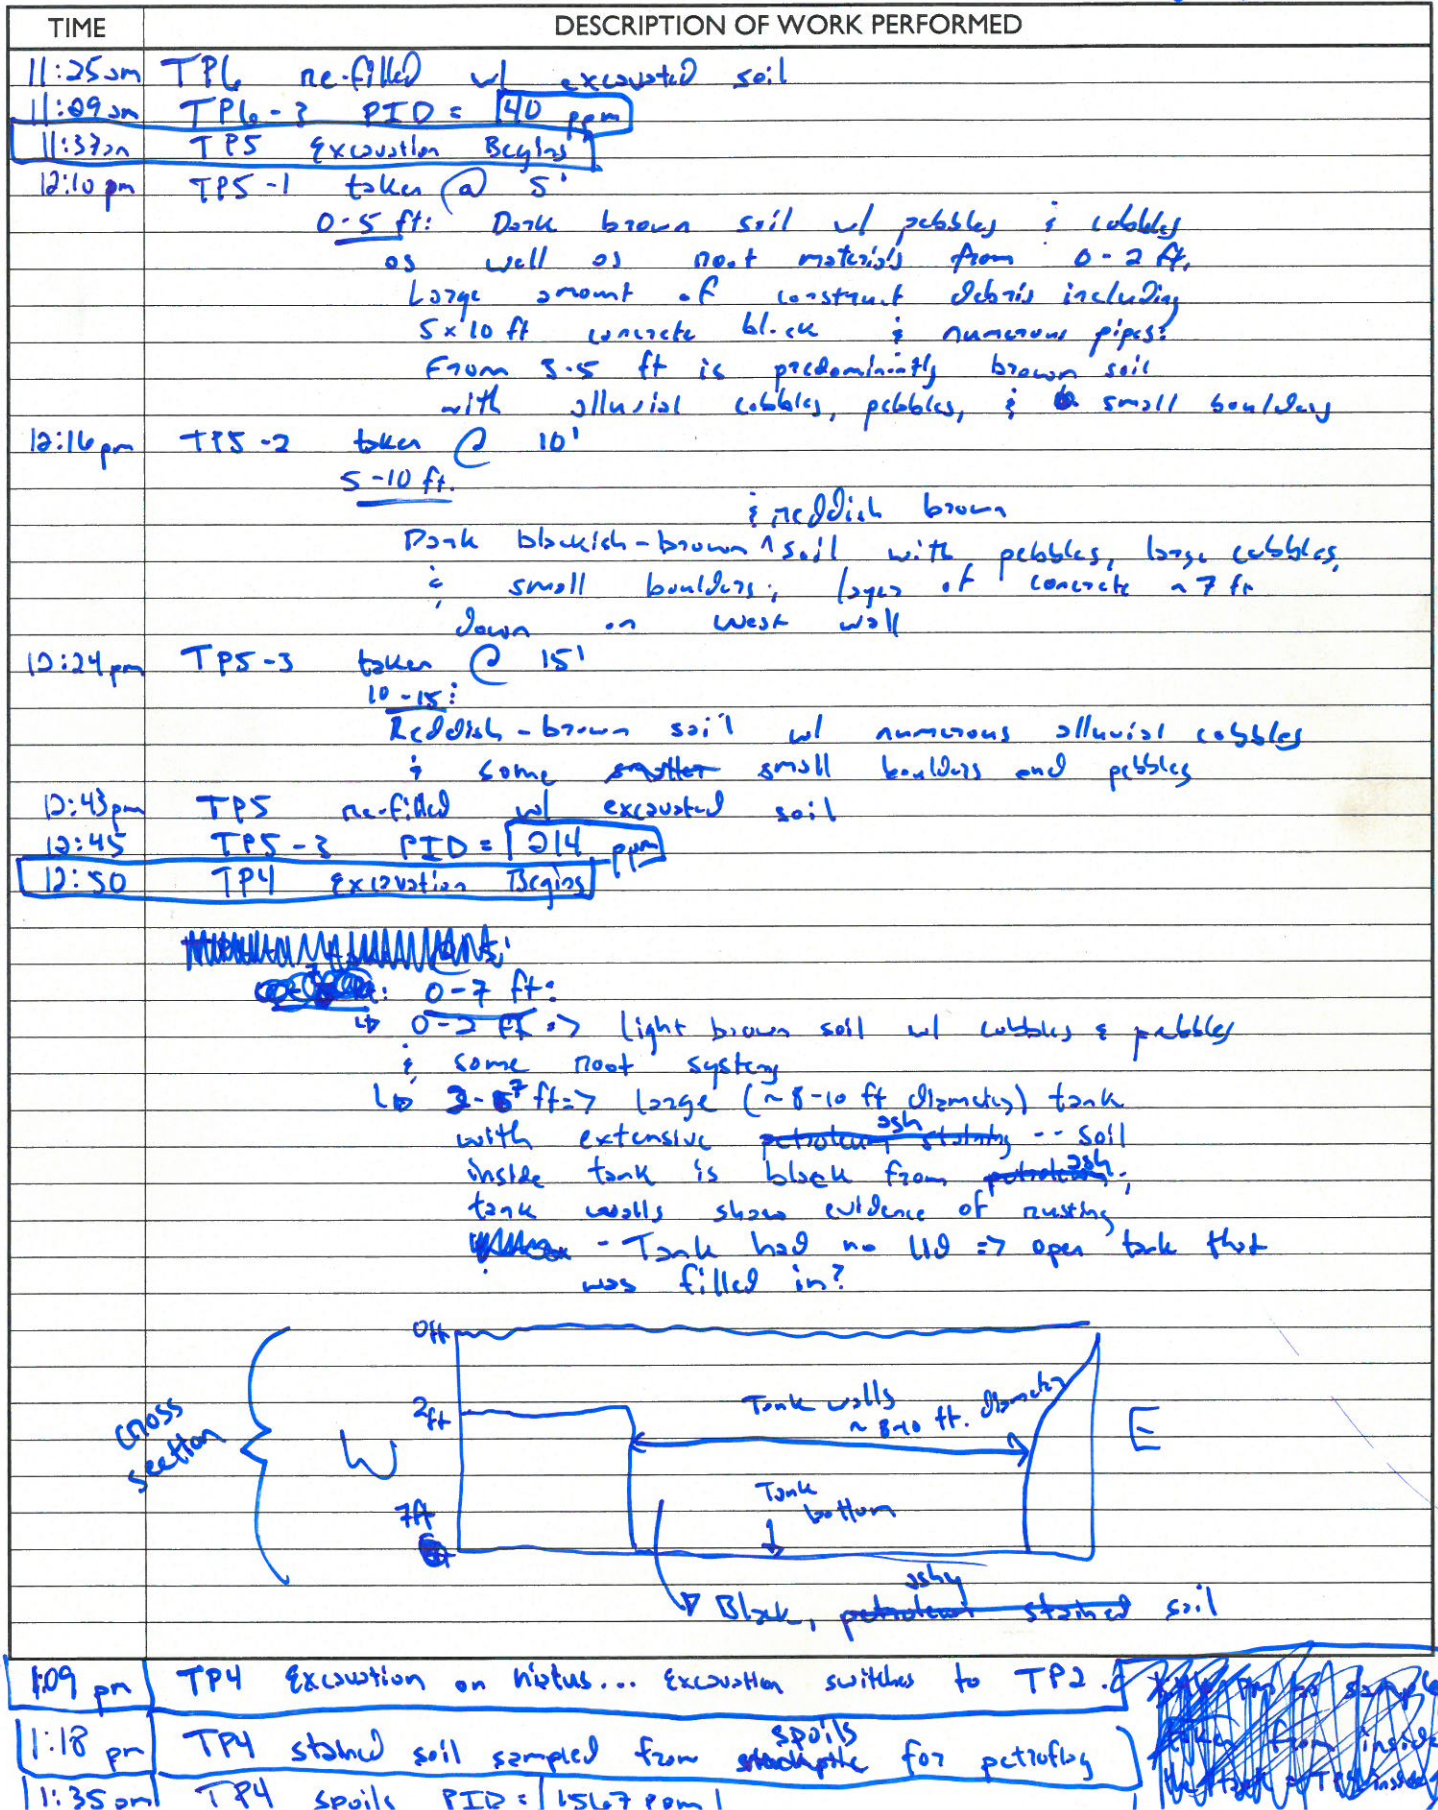 TIME DESCRIPTION OF WORK PERFORMED
11:25am TP6 re-filled w/ excavated soil
11:09am TP6-3 PID = 140 ppm
11:37am TP5 Excavation Begins
12:10 pm TP5-1 taken @ 5'
0-5 ft: Dark brown soil w/ pebbles & cobbles
as well as root materials from 0-2 ft.
Large amount of construct debris including
5x10 ft concrete block & numerous pipes.
From 3-5 ft is predominintly brown soil
with alluvial cobbles, pebbles, & small boulders
12:16 pm TP5-2 taken @ 10'
5-10 ft.
& reddish brown
Dark blackish-brown ^ soil with pebbles, large cobbles,
& small boulders; layer of concrete ~7 ft
down on west wall
12:24 pm TP5-3 taken @ 15'
10-15:
Reddish-brown soil w/ numerous alluvial cobbles
& some smaller small boulders and pebbles
12:43pm TP5 re-filled w/ excavated soil
12:45 TP5-3 PID = 214 ppm
12:50 TP4 Excavation Begins
0-7 ft:
↳ 0-2 ft => light brown soil w/ cobbles & pebbles
& some root systems
↳ 2-7 ft => large (~8-10 ft diameter) tank
ash
with extensive petroleum staining -- soil
ash
inside tank is black from petroleum;
tank walls show evidence of rusting
- Tank had no lid => open tank that
was filled in?
0ft
Tank walls
2ft ~ 8-10 ft. diameter
cross section
W E
Tank
bottom
7ft
ashy
Black, petroleum stained soil
1:09 pm TP4 Excavation on hiatus... Excavation switches to TP2.
spoils
1:18 pm TP4 stained soil sampled from stockpile for petroflag
1:35 pm TP4 spoils PID = 1567 ppm